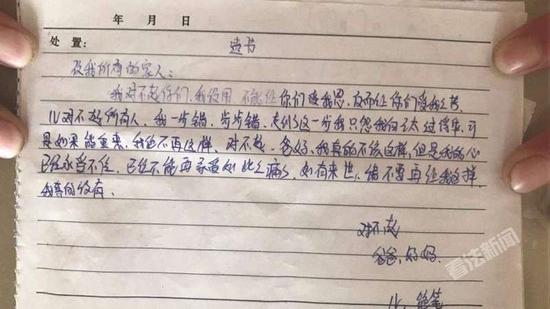 年 月 日
处置:
遗书
致我所有的家人:
我对不起你们,我没用 不能让你们享我恩,反而让你们受我之苦,
儿对不起所有人,我一步错,步步错,走到这一步我只怨我自己太过懦弱,可
是如果能重来,我绝不再这样,对不起,爸妈,我真的不该这样,但是我的心
已经承担不住,已经不能再承受如此之痛,如有来世,绝不要再让我这样,
我真的没有
对不起
爸爸,妈妈
儿,绝笔
看法新闻